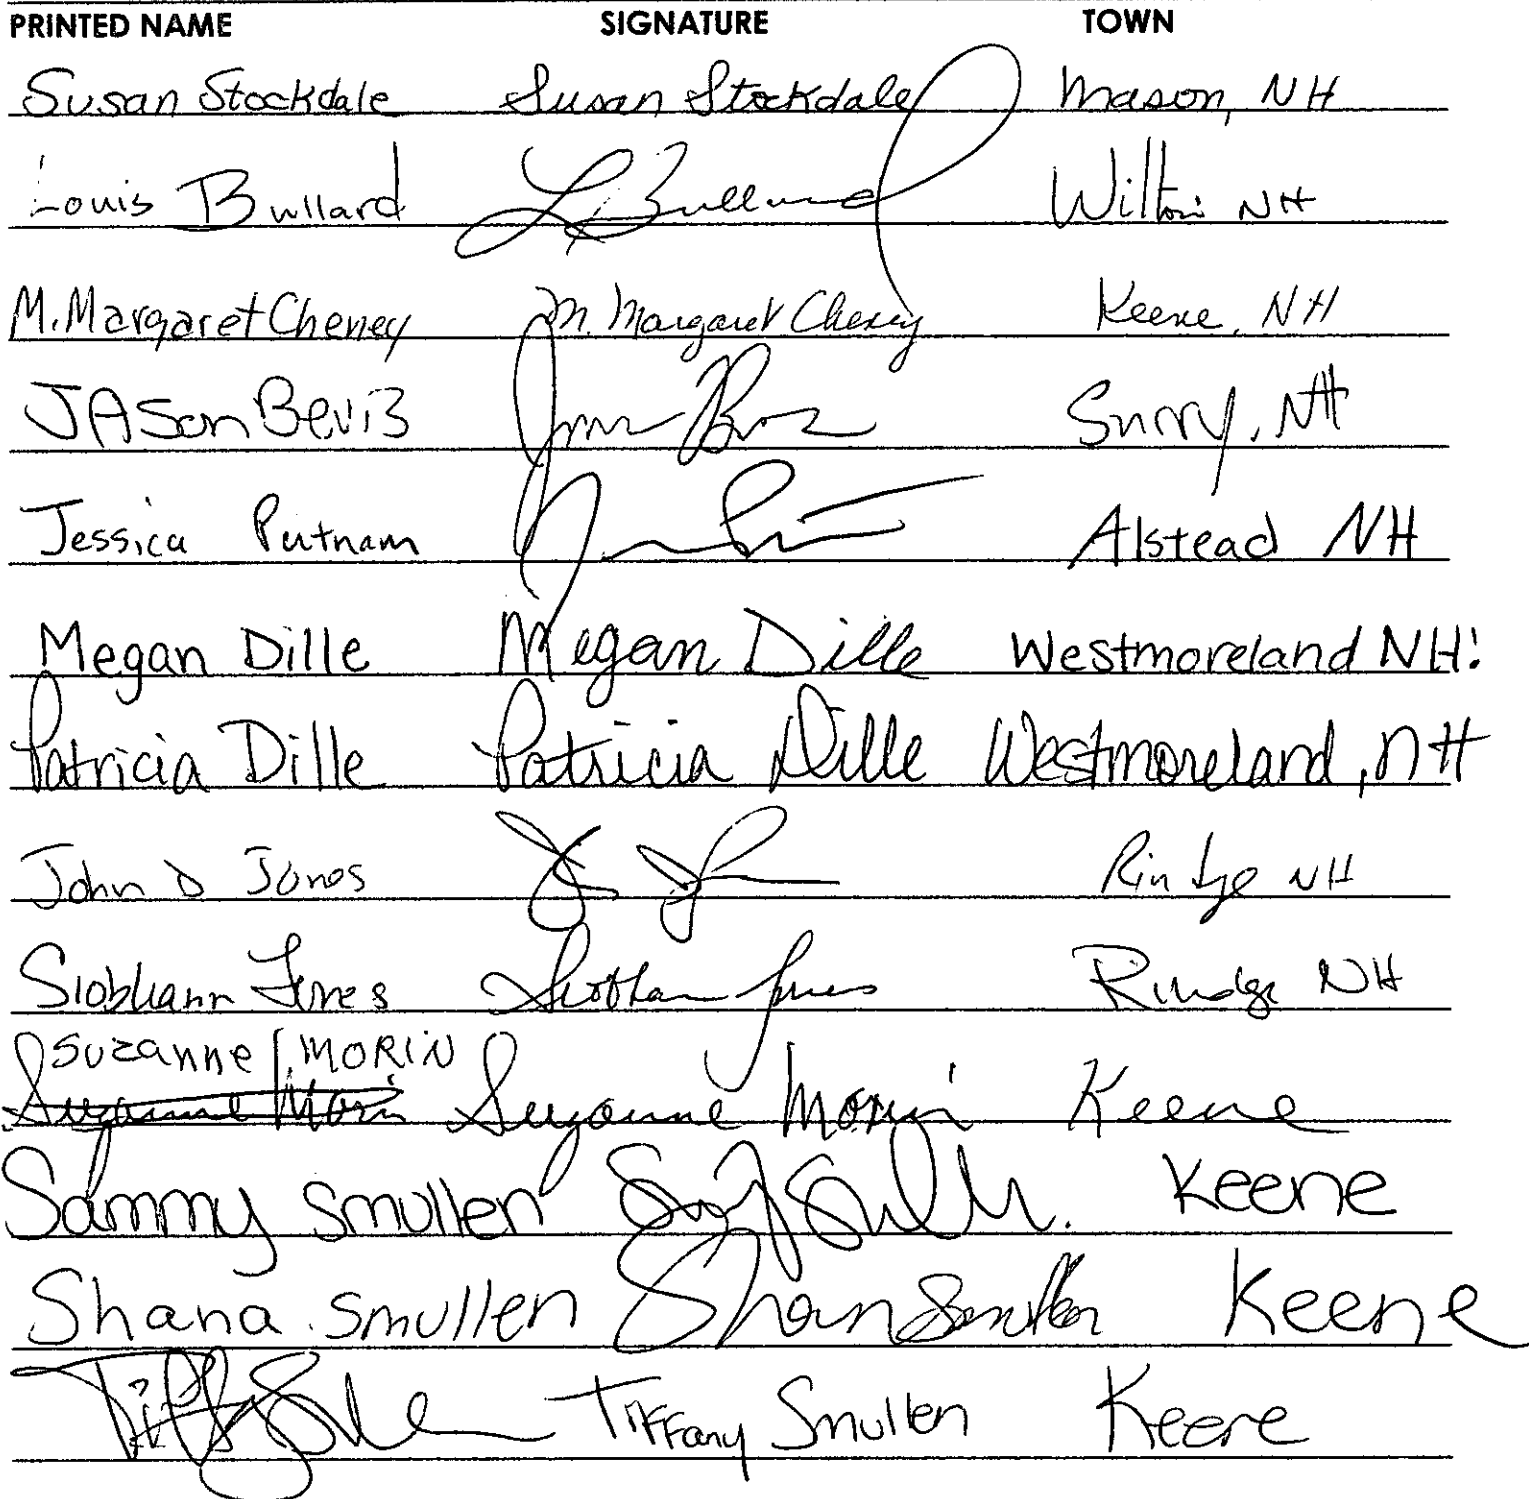 PRINTED NAME SIGNATURE TOWN
Susan Stockdale Susan Stockdale Mason, NH
Louis Bullard L Bullard Wilton NH
M. Margaret Cheney M. Margaret Cheney Keene, NH
JASon Bevis Surry, NH
Jessica Putnam Alstead NH
Megan Dille Megan Dille Westmoreland NH!
Patricia Dille Patricia Dille Westmoreland, NH
John D Jones Rindge NH
Siobhann Jones Siobhan Jones Rindge NH
SUZANNE MORIN
Suzanne Morin Suzanne Morin Keene
Sammy Smullen Keene
Shana Smullen Shana Smullen Keene
Tiffany Smullen Keene